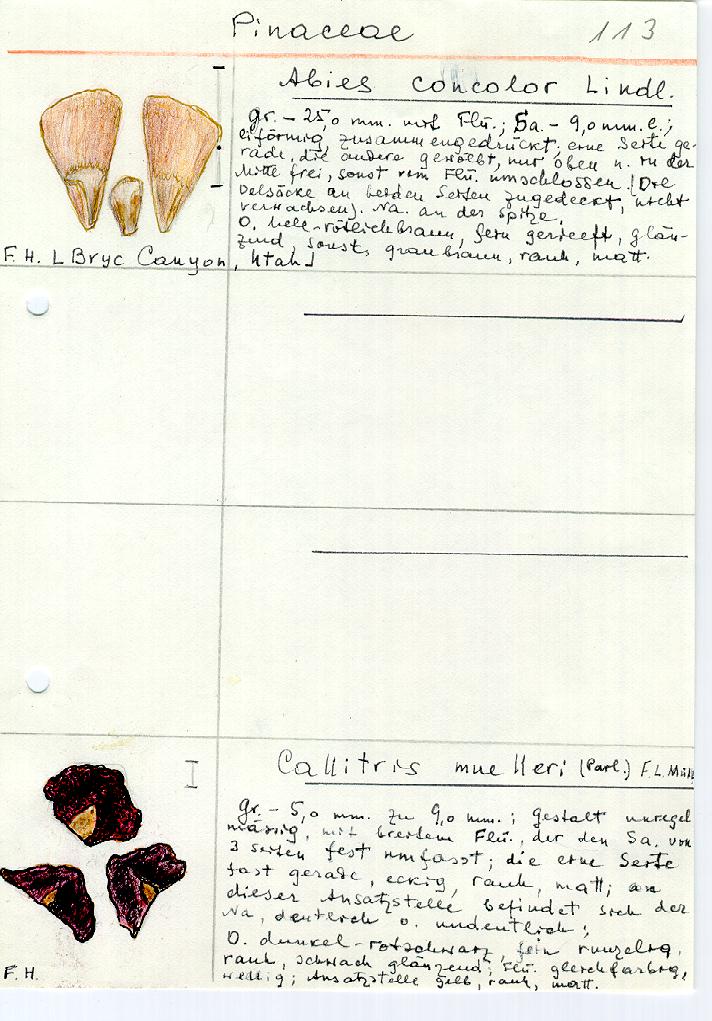 Pinaceae
113
Abies concolor Lindl.
gr. - 25,0 mm. mit Flü.; Sa. - 9,0 mm. l.;
eiförmig, zusammengedrückt, eine Seite ge-
rade, die andere gewölbt, nur oben u. in der
Mitte frei, sonst vom Flü. umschlossen. (Die
Oelsäcke an beiden Seiten zugedeckt, nicht
verwachsen). Na. an der Spitze.
O. hell-rötlichbraun, fein gerieeft, glän-
zend, sonst, graubraun, rauh, matt.
F. H. L Bryc Canyon, Utah
Callitris muelleri (Parl.) F. L. Müll
gr. - 5,0 mm. zu 9,0 mm.; Gestalt unregel
mässig, mit breitem Flü., der den Sa. von
3 Seiten fest umfasst; die eine Seite
fast gerade, eckig, rauh, matt; an
dieser Ansatzstelle befindet sich der
Na, deutlich o. undeutlich;
O. dunkel-rotschwarz, fein runzelig,
rauh, schwach glänzend; Flü. gleichfarbig,
wellig; Ansatzstelle gelb, rauh, matt.
F. H.